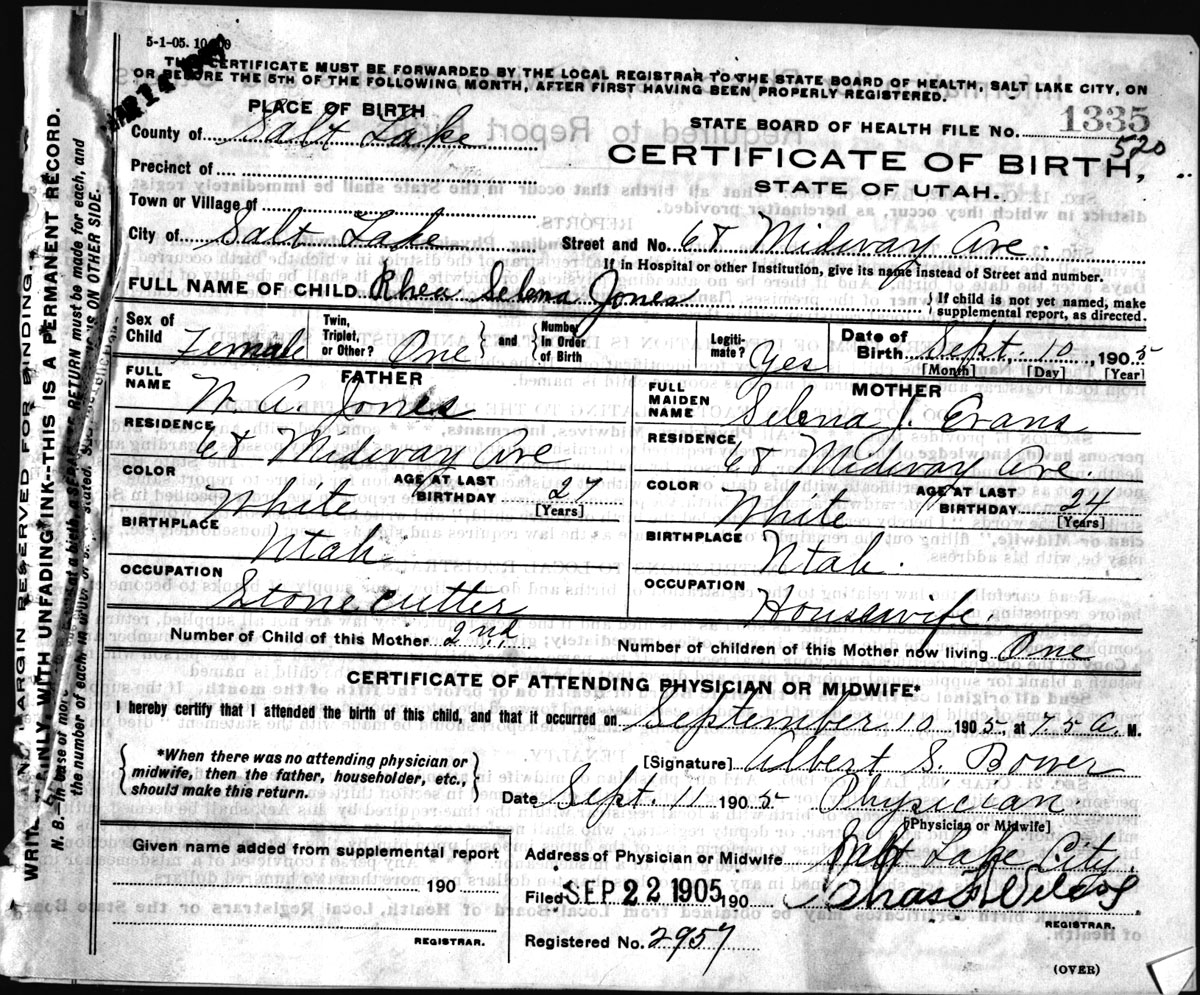 5-1-05. 10
CERTIFICATE MUST BE FORWARDED BY THE LOCAL REGISTRAR TO THE STATE BOARD OF HEALTH, SALT LAKE CITY, ON
OR BEFORE THE 5TH OF THE FOLLOWING MONTH, AFTER FIRST HAVING BEEN PROPERLY REGISTERED.
PLACE OF BIRTH
STATE BOARD OF HEALTH FILE NO. 1335
520
County of Salt Lake
CERTIFICATE OF BIRTH,
STATE OF UTAH.
Precinct of
Town or Village of
City of Salt Lake Street and No. 68 Midway Ave.
If in Hospital or other Institution, give its name instead of Street and number.
FULL NAME OF CHILD Rhea Selena Jones { If child is not yet named, make
supplemental report, as directed.
Sex of Child Female Twin, Triplet, or Other? One } and { Number in Order of Birth Legitimate? Yes Date of Birth Sept. 10 1905
[Month] [Day] [Year]
FATHER
FULL NAME W. A. Jones
RESIDENCE 68 Midway Ave
COLOR White AGE AT LAST BIRTHDAY 27
[Years]
BIRTHPLACE Utah
OCCUPATION Stonecutter
MOTHER
FULL MAIDEN NAME Selena J. Evans
RESIDENCE 68 Midway Ave.
COLOR White AGE AT LAST BIRTHDAY 24
[Years]
BIRTHPLACE Utah.
OCCUPATION Housewife.
Number of Child of this Mother 2nd Number of children of this Mother now living One
CERTIFICATE OF ATTENDING PHYSICIAN OR MIDWIFE*
I hereby certify that I attended the birth of this child, and that it occurred on September 10 1905, at 7.5 A. M.
{ *When there was no attending physician or
midwife, then the father, householder, etc.,
should make this return. }
[Signature] Albert S. Bower
Date Sept. 11 1905 Physician
[Physician or Midwife]
Given name added from supplemental report
190
REGISTRAR.
Address of Physician or Midwife Salt Lake City.
Filed SEP 22 1905 190
REGISTRAR.
Registered No. 2957
(OVER)
MARGIN RESERVED FOR BINDING.
WRITE PLAINLY, WITH UNFADING INK--THIS IS A PERMANENT RECORD.
N. B.--In case of more RETURN must be made for each, and
the number of each, in order stated. ON OTHER SIDE.